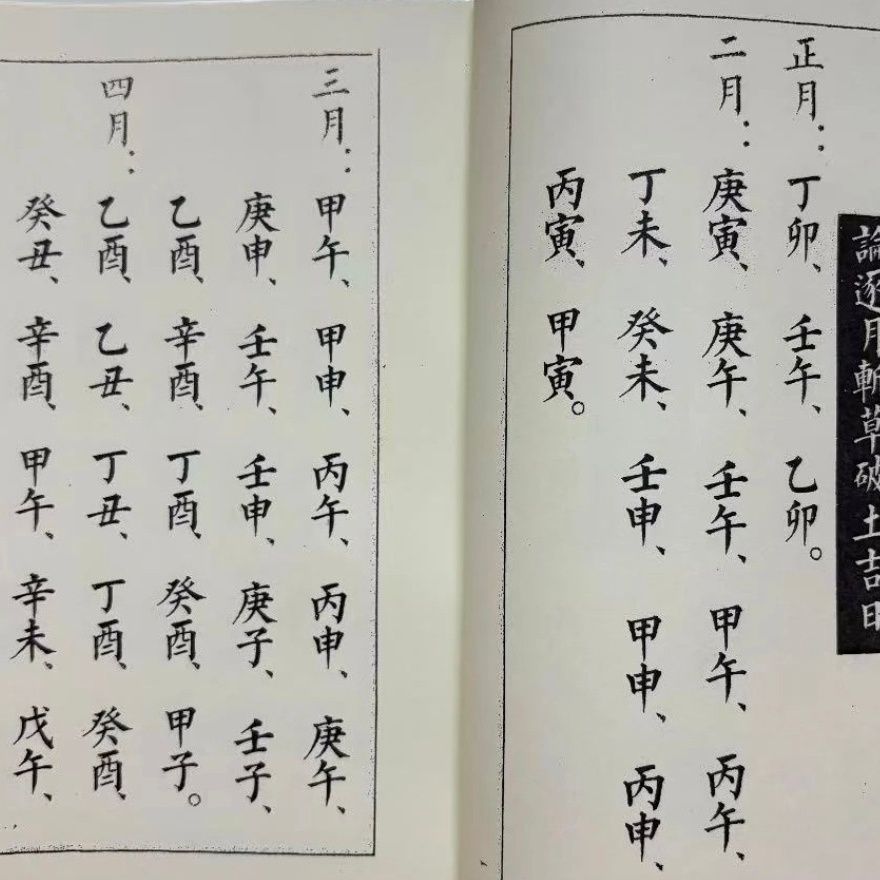 論逐月斬草破土吉日
正月：丁卯、壬午、乙卯。
二月：庚寅、庚午、壬午、甲午、丙午、
丁未、癸未、壬申、甲申、丙申、
丙寅、甲寅。
三月：甲午、甲申、丙午、丙申、庚午、
庚申、壬午、壬申、庚子、壬子、
乙酉、辛酉、丁酉、癸酉、甲子。
四月：乙酉、乙丑、丁丑、丁酉、癸酉、
癸丑、辛酉、甲午、辛未、戊午、